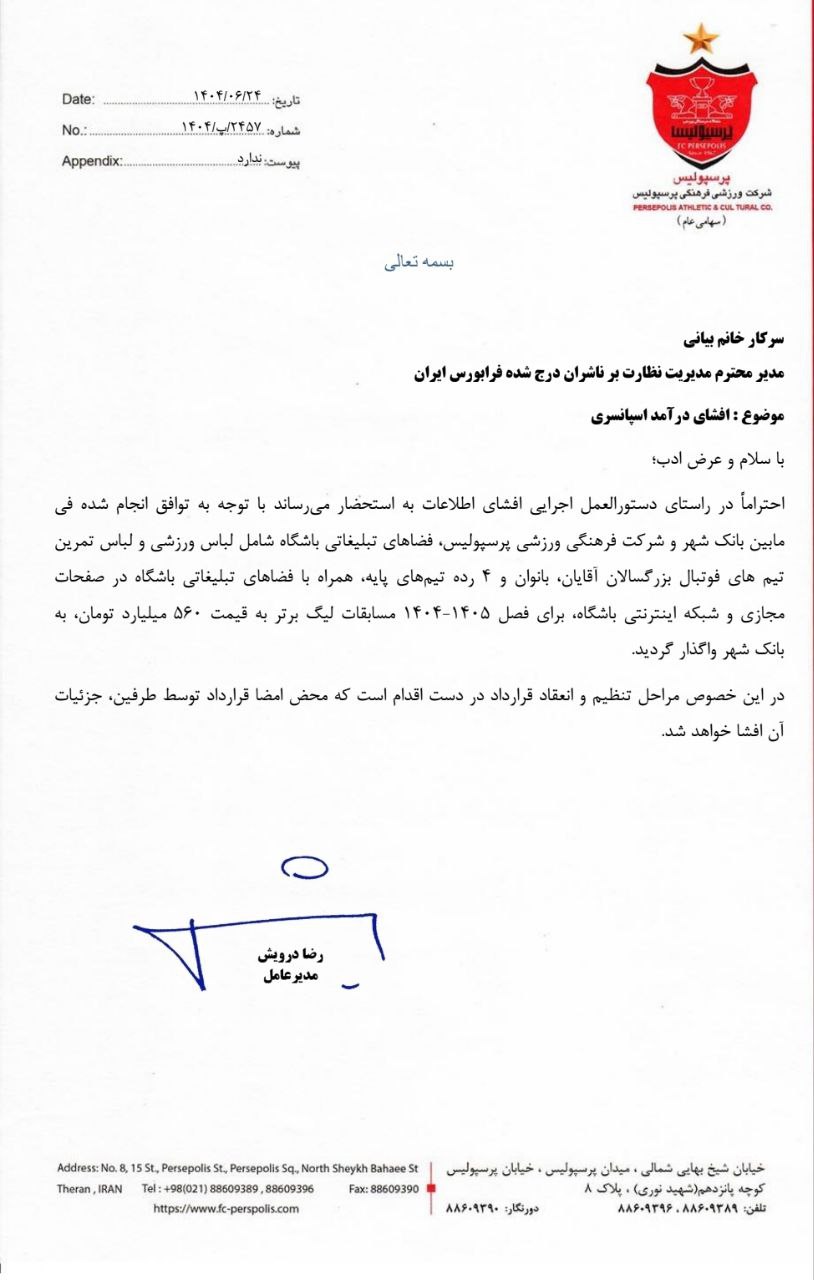 Date: ۱۴۰۴/۰۶/۲۴ تاریخ:
No.: ۱۴۰۴/پ/۲۴۵۷ شماره:
Appendix: ندارد پیوست:
پرسپولیس
FC PERSEPOLIS
Since 1967
پرسپولیس
شرکت ورزشی فرهنگی پرسپولیس
PERSEPOLIS ATHLETIC & CUL TURAL CO.
(سهامی عام)
بسمه تعالی
سرکار خانم بیانی
مدیر محترم مدیریت نظارت بر ناشران درج شده فرابورس ایران
موضوع : افشای درآمد اسپانسری
با سلام و عرض ادب؛
احتراماً در راستای دستورالعمل اجرایی افشای اطلاعات به استحضار می‌رساند با توجه به توافق انجام شده فی
مابین بانک شهر و شرکت فرهنگی ورزشی پرسپولیس، فضاهای تبلیغاتی باشگاه شامل لباس ورزشی و لباس تمرین
تیم های فوتبال بزرگسالان آقایان، بانوان و ۴ رده تیم‌های پایه، همراه با فضاهای تبلیغاتی باشگاه در صفحات
مجازی و شبکه اینترنتی باشگاه، برای فصل ۱۴۰۵-۱۴۰۴ مسابقات لیگ برتر به قیمت ۵۶۰ میلیارد تومان، به
بانک شهر واگذار گردید.
در این خصوص مراحل تنظیم و انعقاد قرارداد در دست اقدام است که محض امضا قرارداد توسط طرفین، جزئیات
آن افشا خواهد شد.
رضا درویش
مدیرعامل
خیابان شیخ بهایی شمالی ، میدان پرسپولیس ، خیابان پرسپولیس
کوچه پانزدهم(شهید نوری) ، پلاک ۸
تلفن: ۸۸۶۰۹۳۸۹ ، ۸۸۶۰۹۳۹۶ دورنگار: ۸۸۶۰۹۳۹۰
Address: No. 8, 15 St., Persepolis St., Persepolis Sq., North Sheykh Bahaee St
Theran , IRAN Tel : +98(021) 88609389 , 88609396 Fax: 88609390
https://www.fc-perspolis.com